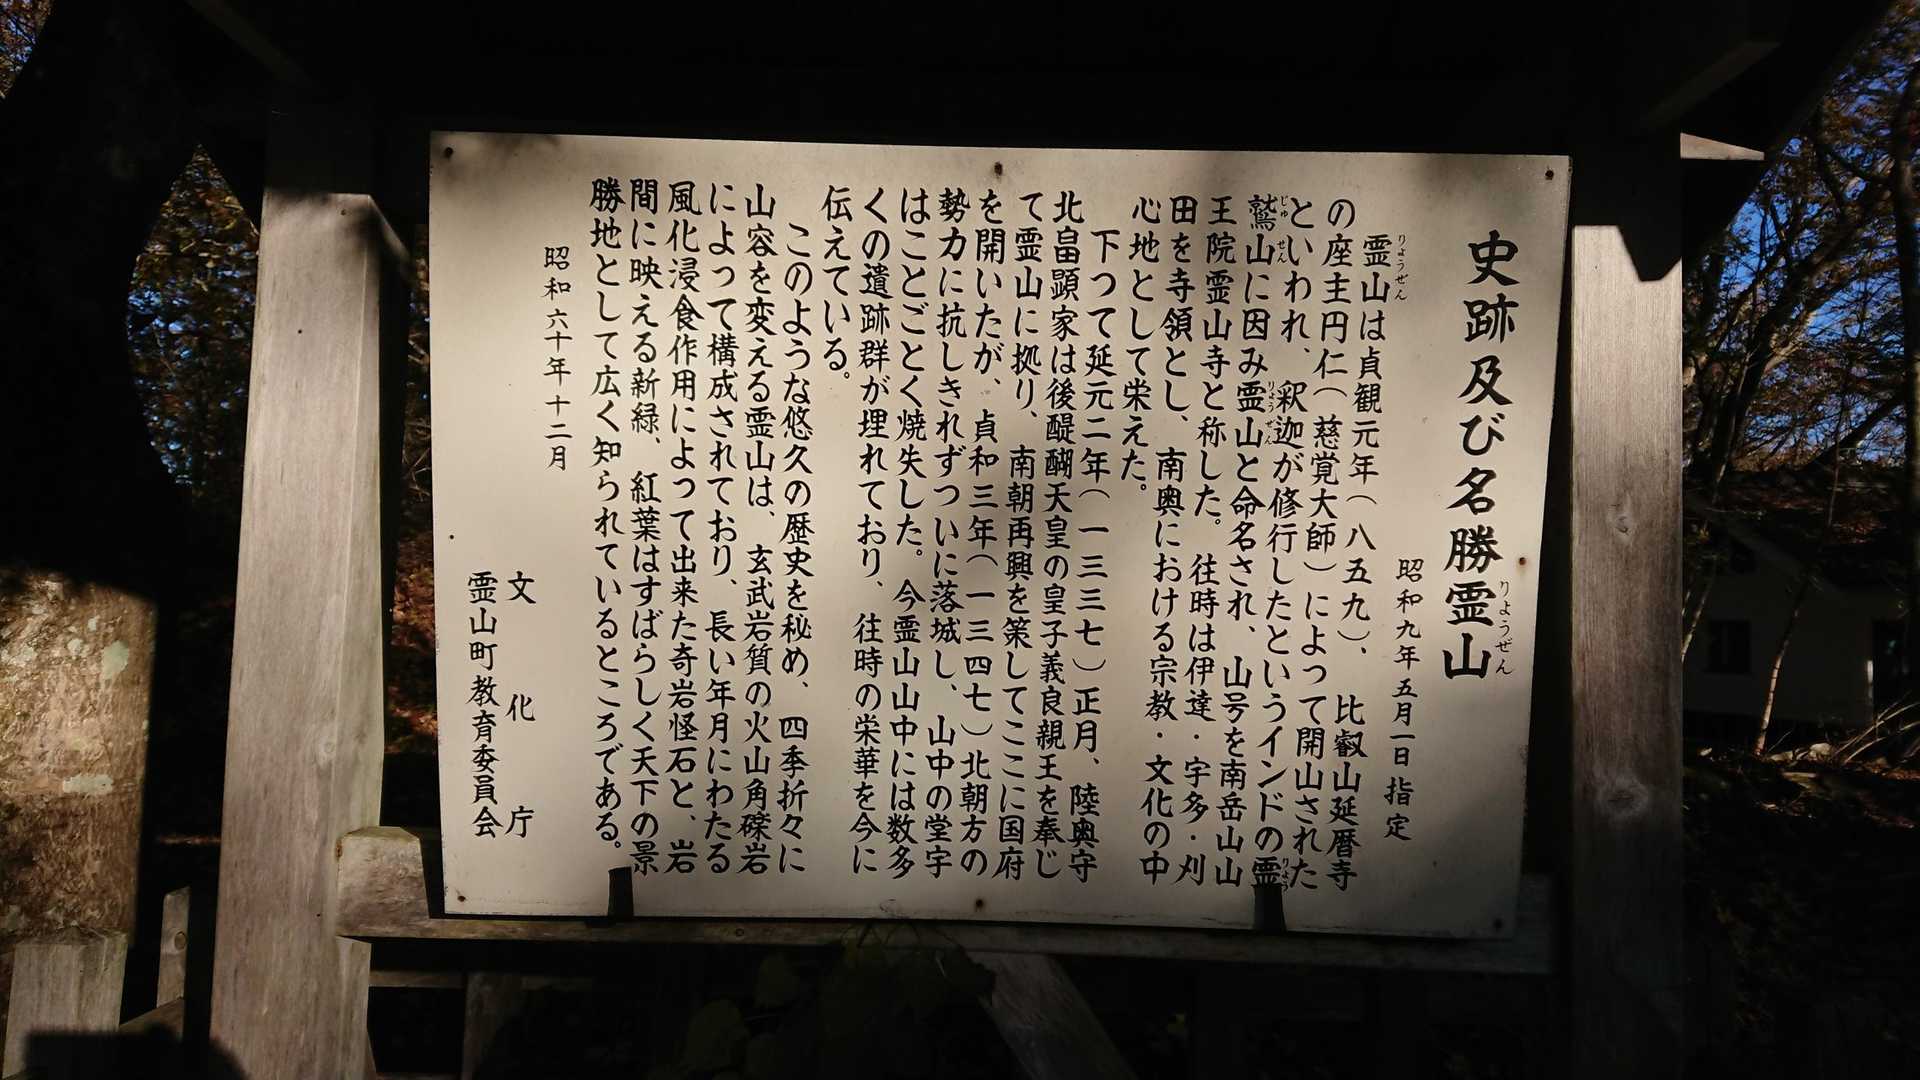 史跡及び名勝霊山
りょうぜん
昭和九年五月一日指定
霊山は貞観元年(八五九)、比叡山延暦寺
りょうぜん
の座主円仁(慈覚大師)によって開山された
といわれ、釈迦が修行したというインドの霊
りょう
鷲山に因み霊山と命名され、山号を南岳山山
じゅせん
りょうぜん
王院霊山寺と称した。往時は伊達・宇多・刈
田を寺領とし、南奥における宗教・文化の中
心地として栄えた。
下って延元二年(一三三七)正月、陸奥守
北畠顕家は後醍醐天皇の皇子義良親王を奉じ
て霊山に拠り、南朝再興を策してここに国府
を開いたが、貞和三年(一三四七)北朝方の
勢力に抗しきれずついに落城し、山中の堂宇
はことごとく焼失した。今霊山山中には数多
くの遺跡群が埋れており、往時の栄華を今に
伝えている。
このような悠久の歴史を秘め、四季折々に
山容を変える霊山は、玄武岩質の火山角礫岩
によって構成されており、長い年月にわたる
風化浸食作用によって出来た奇岩怪石と、岩
間に映える新緑、紅葉はすばらしく天下の景
勝地として広く知られているところである。
昭和六十年十二月
文化庁
霊山町教育委員会